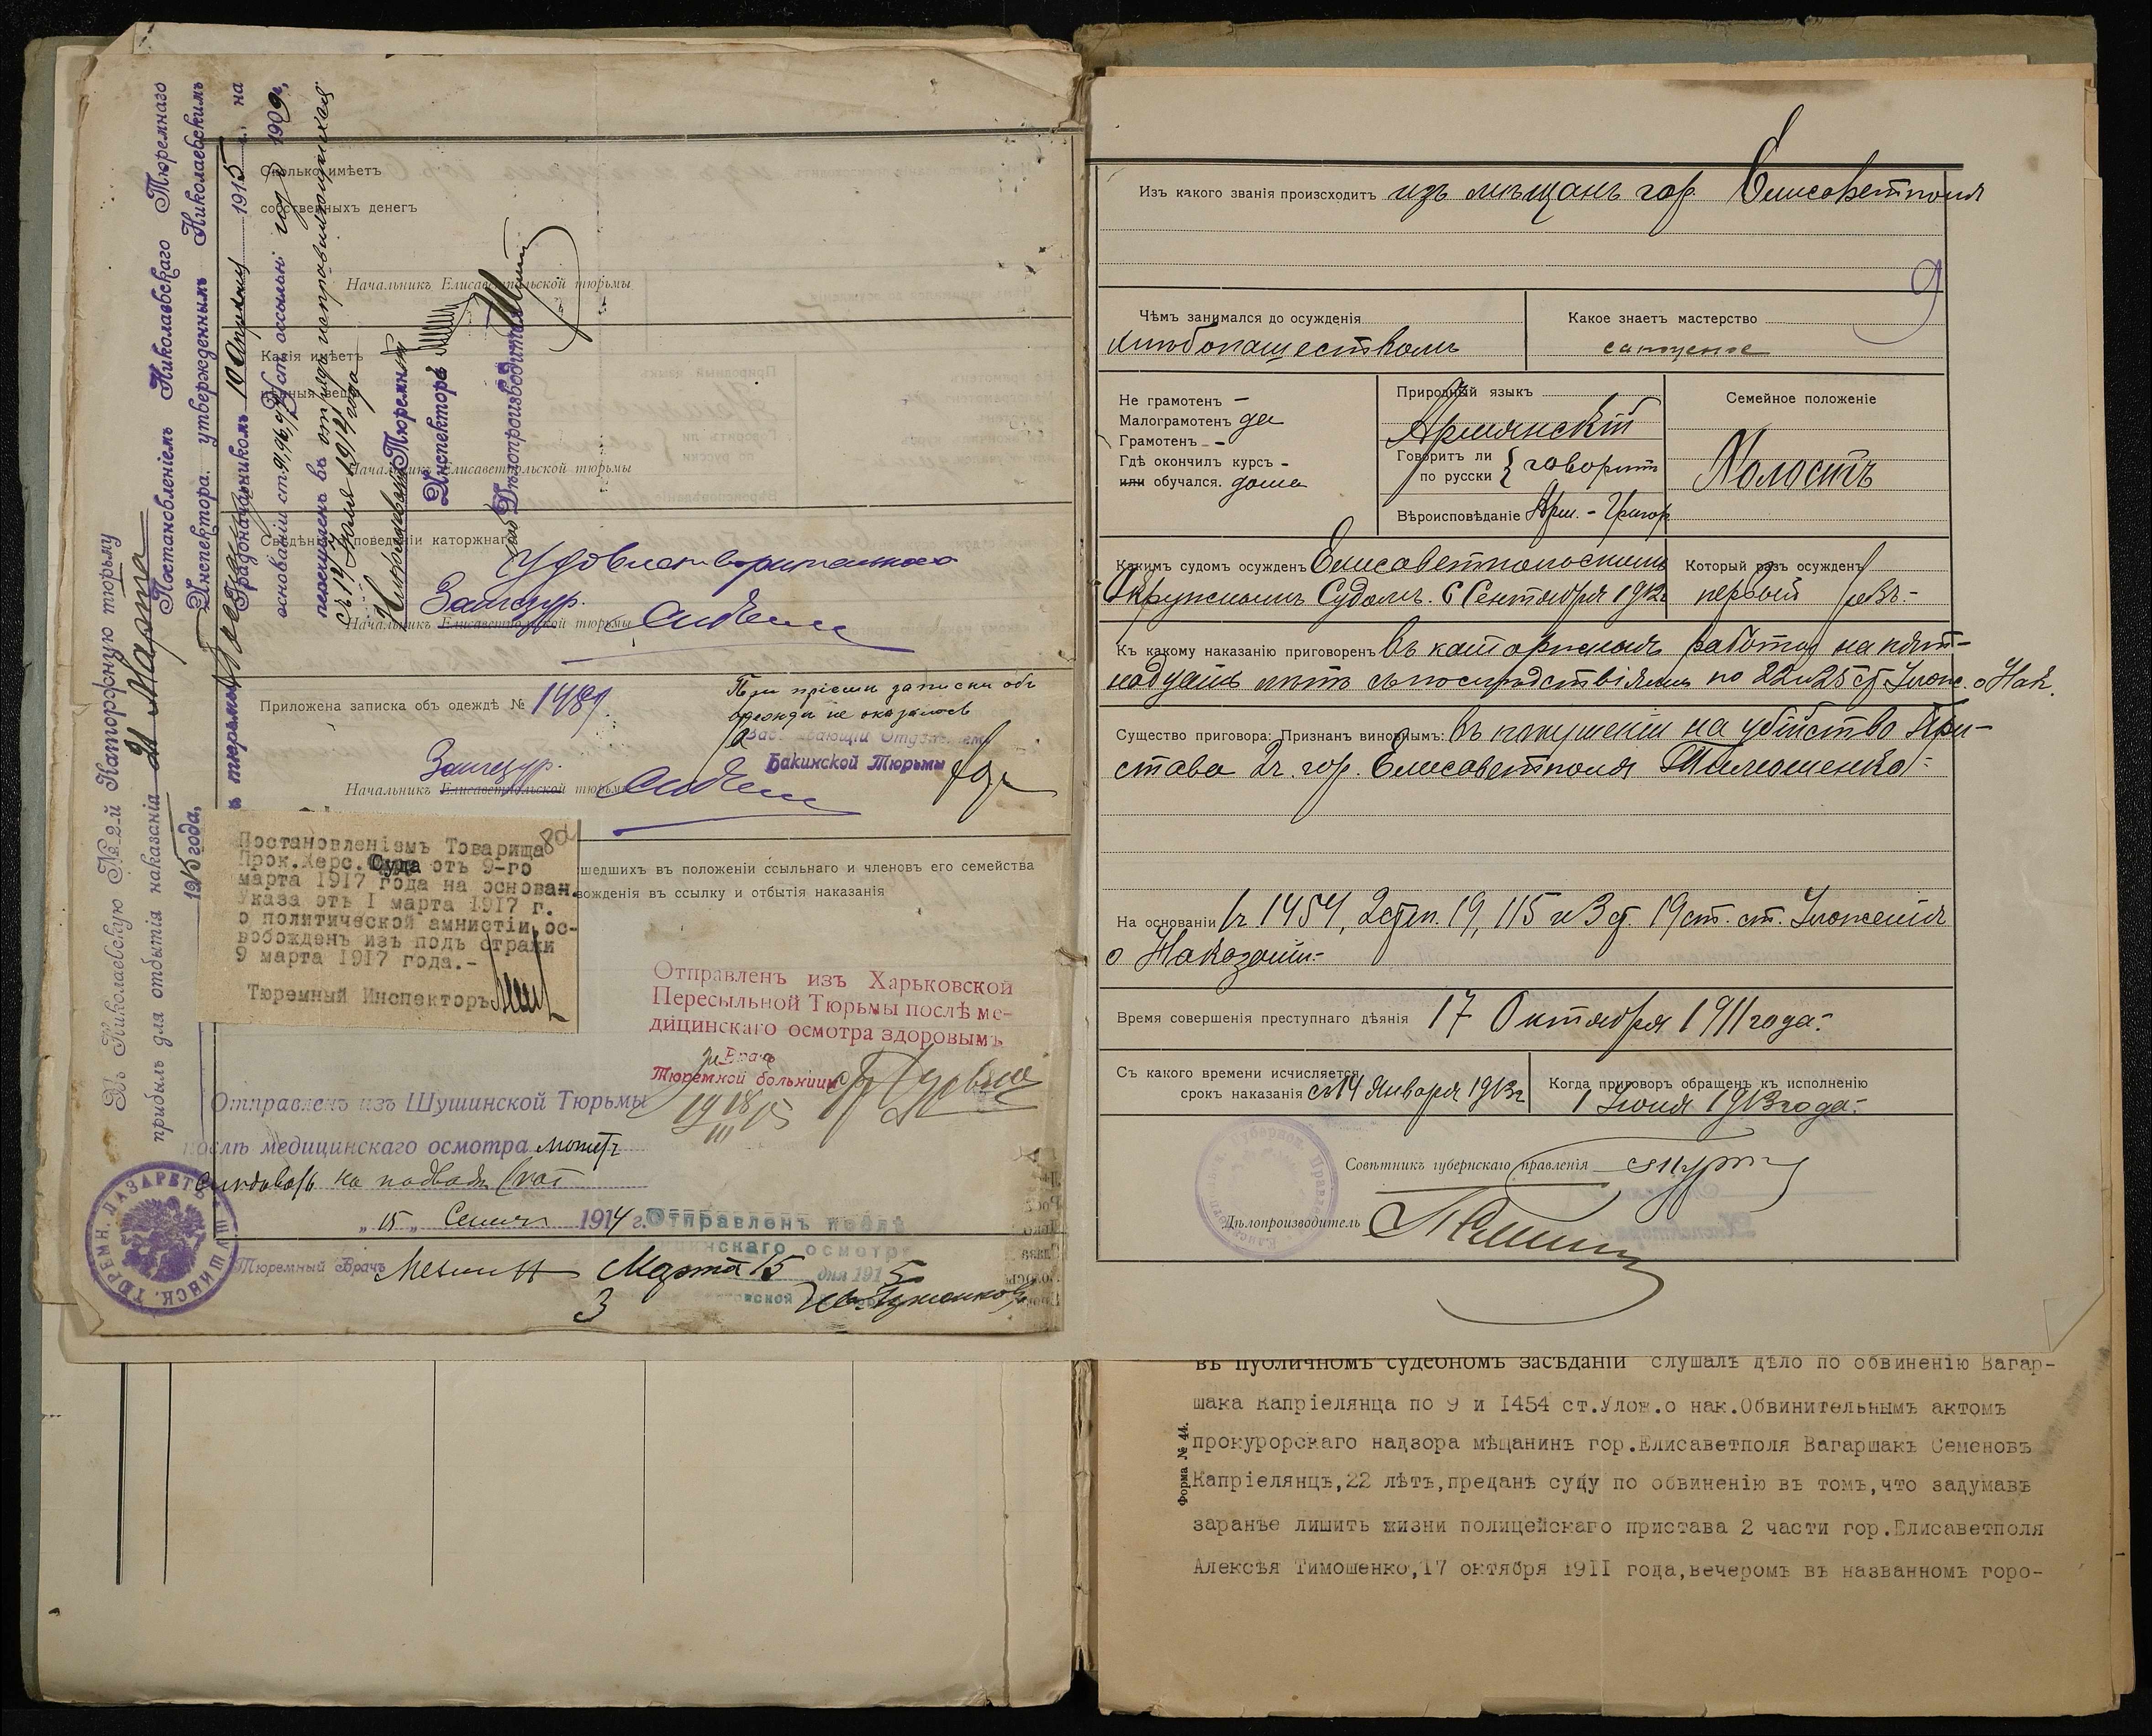 Въ Николаевскую № 2-й Каторжную тюрьму
прибылъ для отбытія наказанія 21 Марта
1915 года.
Постановленіемъ Николаевскаго Тюремнаго
Инспектора, утвержденнымъ Николаевскимъ
Градоначальникомъ 10 Апрѣля 1915 г., на
основаніи ст.
перечисленъ въ отрядъ исправляющихся
съ 14 Іюля 1914 года
Николаевскій Тюремный
Инспекторъ
Дѣлопроизводитель
Сколько имѣетъ
собственныхъ денегъ
Начальникъ Елисаветпольской тюрьмы
Какія имѣетъ
цѣнныя вещи
Начальникъ Елисаветпольской тюрьмы
Свѣдѣнія о поведеніи каторжнаго
Удовлетворительнаго
Зангезур.
Начальникъ Елисаветпольской тюрьмы
Приложена записка объ одеждѣ № 1489.
При пріемѣ записки объ
одежде не оказалось
Завѣдывающій Отдѣленіемъ
Бакинской Тюрьмы
Зангезур.
Начальникъ Елисаветпольской тюрьмы
Постановленіемъ Товарища
Прок.Херс.Суда отъ 9-го
марта 1917 года на основан.
Указа отъ I марта 1917 г.
о политической амнистіи ос-
вобожденъ изъ подъ стражи
9 марта 1917 года.-
Тюремный Инспекторъ
шедшихъ въ положеніи ссыльнаго и членовъ его семейства
вожденія въ ссылку и отбытія наказанія
Отправленъ изъ Харьковской
Пересыльной Тюрьмы послѣ ме-
дицинскаго осмотра здоровымъ
Врачъ
Тюремной больницы
19 18/III 15
Отправленъ изъ Шушинской Тюрьмы
послѣ медицинскаго осмотра можетъ
слѣдовать на подводѣ
„ 15 „ 1914 г.
Тюремный Врачъ
ТЮРЕМН. ЛАЗАРЕТЪ ШУШИНСК.
Отправленъ послѣ
медицинскаго осмотра
Марта 15 дня 1915
Изъ какого званія происходитъ изъ мѣщанъ гор Елисаветполя
9
Чѣмъ занимался до осужденія
хлѣбопашествомъ
Какое знаетъ мастерство
сапожное
Не грамотенъ –
Малограмотенъ да
Грамотенъ –
Гдѣ окончилъ курсъ –
или обучался. дома
Природный языкъ
Армянскій
Говоритъ ли
по русски { говоритъ
Вѣроисповѣданіе Арм.-Григор
Семейное положеніе
Холостъ
Какимъ судомъ осужденъ Елисаветпольскимъ
Окружнымъ Судомъ. 6 Сентября 1912г
Который разъ осужденъ
первый разъ.-
Къ какому наказанію приговоренъ въ каторжныя работы на пят-
надцать лѣтъ съ послѣдствіями по 22 и 25 ст Улож. о Нак.
Существо приговора: Признанъ виновнымъ: въ покушеніи на убійство При-
става 2ч. гор. Елисаветполя Тимошенко.-
На основаніи 1ч. 1454, 2 степ. 19, 115 и 3 ст. 19 ст. ст. Уложенія
о Наказан.-
Время совершенія преступнаго дѣянія 17 Октября 1911 года.-
Съ какого времени исчисляется
срокъ наказанія съ 14 Января 1913г
Когда приговоръ обращенъ къ исполненію
1 Іюня 1913 года.-
Совѣтникъ губернскаго правленія
Дѣлопроизводитель
Форма № 44.
въ публичномъ судебномъ засѣданіи слушалъ дѣло по обвиненію Вагар-
шака Капріелянца по 9 и I454 ст.Улож.о нак.Обвинительнымъ актомъ
прокурорскаго надзора мѣщанинъ гор.Елисаветполя Вагаршакъ Семеновъ
Капріелянцъ,22 лѣтъ,преданъ суду по обвиненію въ томъ,что задумавъ
заранѣе лишить жизни полицейскаго пристава 2 части гор.Елисаветполя
Алексѣя Тимошенко,I7 октября I9II года,вечеромъ въ названномъ горо-